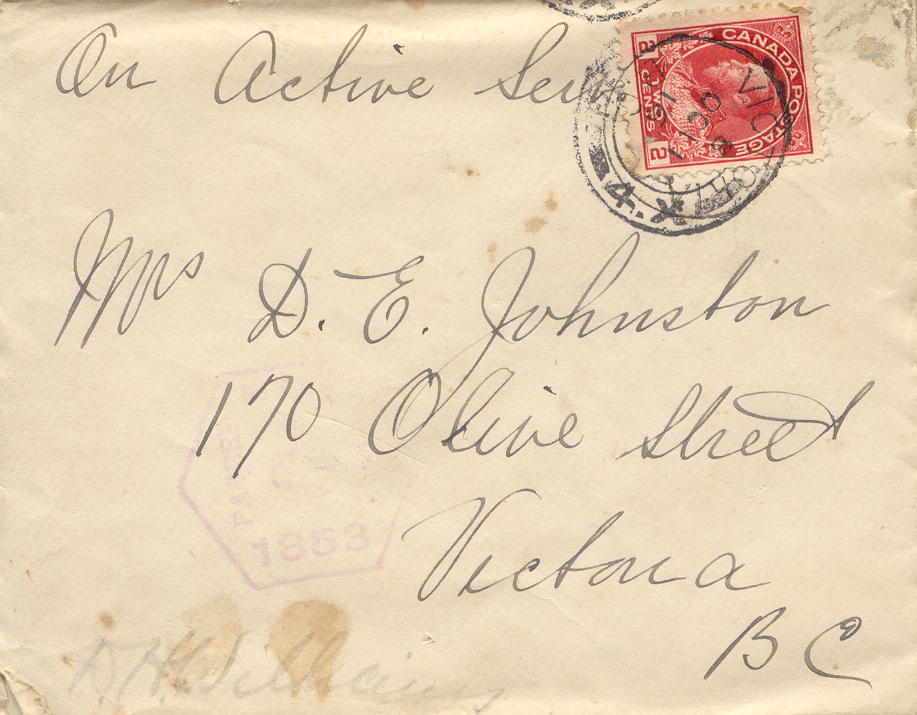 On Active Ser
CANADA POSTAGE
2 CENTS 2
4. X
Mrs D. E. Johnston
170 Olive Street
Victoria
B C
1853
D. H. Williams